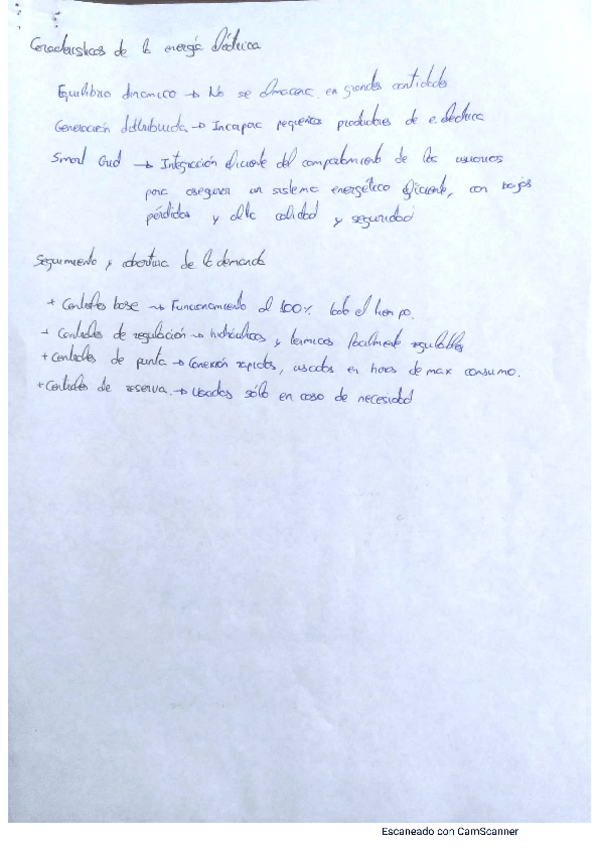 Características de la energía eléctrica
Equilibrio dinámico → No se almacena en grandes cantidades
Generación distribuida → Incapac pequeños productores de e. eléctrica
Smart Grid → Integración eficiente del comportamiento de los usuarios
para asegurar un sistema energético eficiente, con bajas
pérdidas y alta calidad y seguridad
Seguimiento y cobertura de la demanda
+ Centrales base → Funcionamiento al 100% todo el tiempo.
+ Centrales de regulación → hidráulicas y térmicas fácilmente regulables
+ Centrales de punta → Conexión rápidas, usadas en horas de max consumo.
+ Centrales de reserva. → Usadas sólo en caso de necesidad
Escaneado con CamScanner